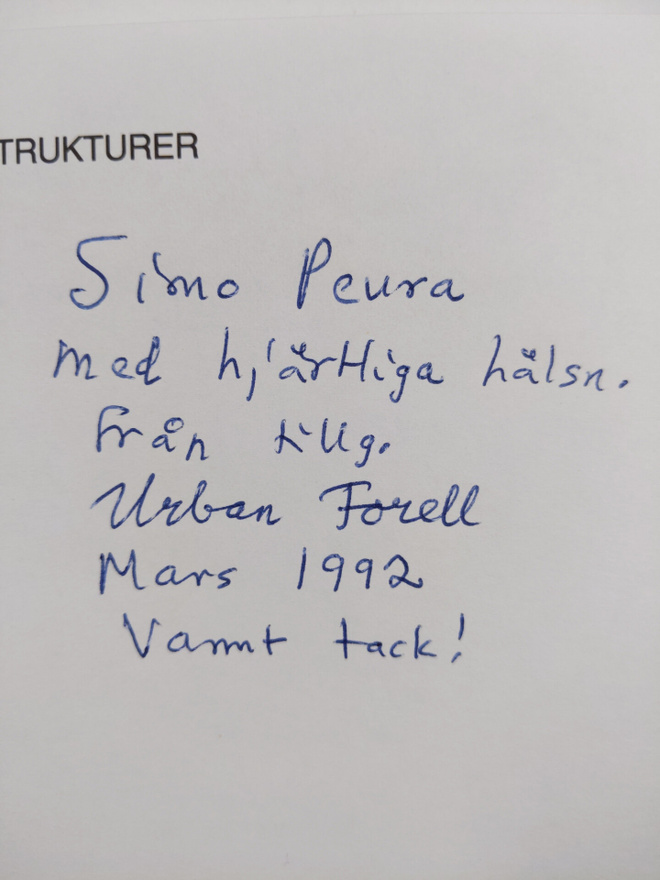 TRUKTURER
Simo Peura
med hjärtliga hälsn.
från tillg.
Urban Forell
Mars 1992
Varmt tack!